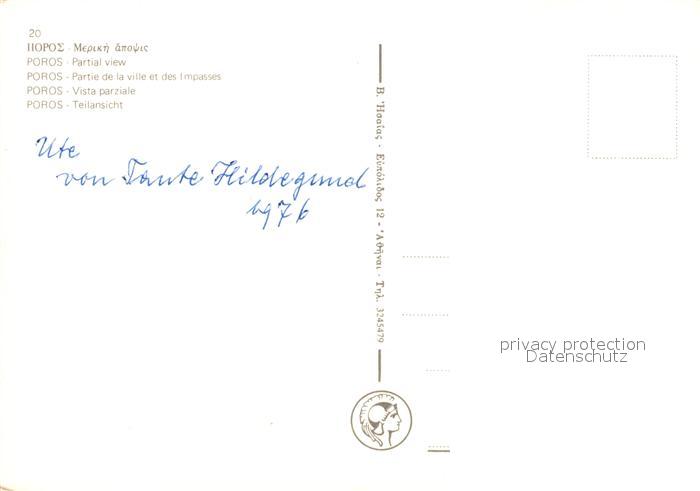 20
ΠΟΡΟΣ - Μερικὴ ἄποψις
POROS - Partial view
POROS - Partie de la ville et des Impasses
POROS - Vista parziale
POROS - Teilansicht
Ute
von Tante Hildegund
1976
Β. Ἡσαΐας · Εὐπόλιδος 12 - Ἀθῆναι · Τηλ. 3245479
privacy protection
Datenschutz